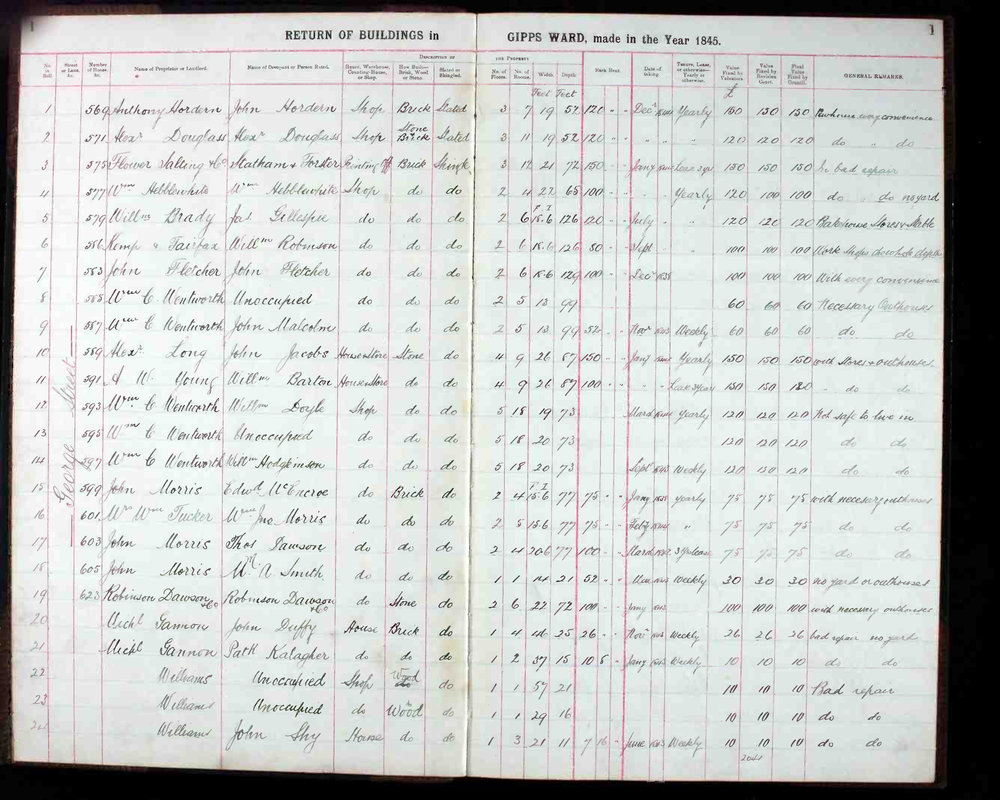 1
RETURN OF BUILDINGS in GIPPS WARD, made in the Year 1845.
1
DESCRIPTION OF THE PROPERTY
No. in Roll. Street or Lane, &c. Number of House, &c. Name of Proprietor or Landlord. Name of Occupant or Person Rated. House, Warehouse, Counting-House, or Shop. How Built—Brick, Wood or Stone. Slated or Shingled. No. of Floors. No. of Rooms. Width. Depth. Rack Rent. Date of taking. Tenure, Lease, or otherwise—Yearly or otherwise. Value Fixed by Valuators. Value Fixed by Revision Court. Final Value Fixed by Council. GENERAL REMARKS.
Feet Feet £
George Street
1 569 Anthony Hordern John Hordern Shop Brick Slated 3 7 19 52 120 " " Decr Yearly 150 150 150 every convenience
2 571 Alexr Douglass Alexr Douglass Shop Stone Brick Slated 3 11 19 52 120 " " " " " 120 120 120 do " do
3 575 Flower Salting & Co Statham & Forster Printing Off Brick Shingle 3 12 21 72 150 " " Jany Lease 150 150 150 In bad repair
4 577 Wm Hebblewhite Wm Hebblewhite Shop do do 2 4 22 65 100 " " " " Yearly 120 100 100 do " do no yard
5 579 Willm Brady Jas Gillespie do do do 2 6 F I 18.6 126 120 " " July " 120 120 120 Bakehouse Stores & Stable
6 581 Kemp & Fairfax Willm Robinson do do do 2 6 18.6 126 80 " " Sept " 100 100 100 Work Shops
7 583 John Fletcher John Fletcher do do do 2 6 18.6 129 100 " " Decr 1838 100 100 100 With every convenience
8 585 Wm C Wentworth Unoccupied do do do 2 5 13 99 60 60 60 Necessary Outhouses
9 587 Wm C Wentworth John Malcolm do do do 2 5 13 99 52 " " Novr 1843 Weekly 60 60 60 do do
10 589 Alexr Long John Jacobs House & Store Stone do 4 9 26 87 150 " " Jany Yearly 150 150 150 with Stores & outhouses
11 591 A W Young Willm Barton House & Store do do 4 9 26 87 100 " " " " Lease 3 Years 150 150 150 " do do
12 593 Wm C Wentworth Willm Doyle Shop do do 5 18 19 73 March Yearly 120 120 120 Not safe to live in
13 595 Wm C Wentworth Unoccupied do do do 5 18 20 73 120 120 120 do do
14 597 Wm C Wentworth Willm Hodgkinson do do do 5 18 20 73 Septr 1843 Weekly 120 120 120 do do
15 599 John Morris Edwd McEncroe do Brick do 2 4 F I 15.6 77 75 " " Jany yearly 75 75 75 with necessary outhouses
16 601 Wm Tucker Wm Jno Morris do do do 2 5 15.6 77 75 " " Feby " 75 75 75 do do
17 603 John Morris Thos Dawson do do do 2 4 20.6 77 100 " " March 3 Yr Lease 75 75 75 do do
18 605 John Morris A Smith do do do 1 1 14 21 52 " " 1843 Weekly 30 30 30 no yard or outhouses
19 623 Robinson Dawson & Co Robinson Dawson & Co do Stone do 2 6 22 72 100 " " Jany " 100 100 100 with necessary outhouses
20 Michl Gannon John Duffy House Brick do 1 4 25 26 " " Novr 1843 Weekly 26 26 26 bad repair no yard
21 Michl Gannon Patk Kalagher do do do 1 2 37 15 10 8 " Jany 1843 Weekly 10 10 10 do do
22 Williams Unoccupied Shop Wood do 1 1 57 21 10 10 10 Bad repair
23 Williams Unoccupied do Wood do 1 1 29 16 10 10 10 do do
24 Williams John Shy House do do 1 3 21 11 7 16 " June 1843 Weekly 10 10 10 do do
2041